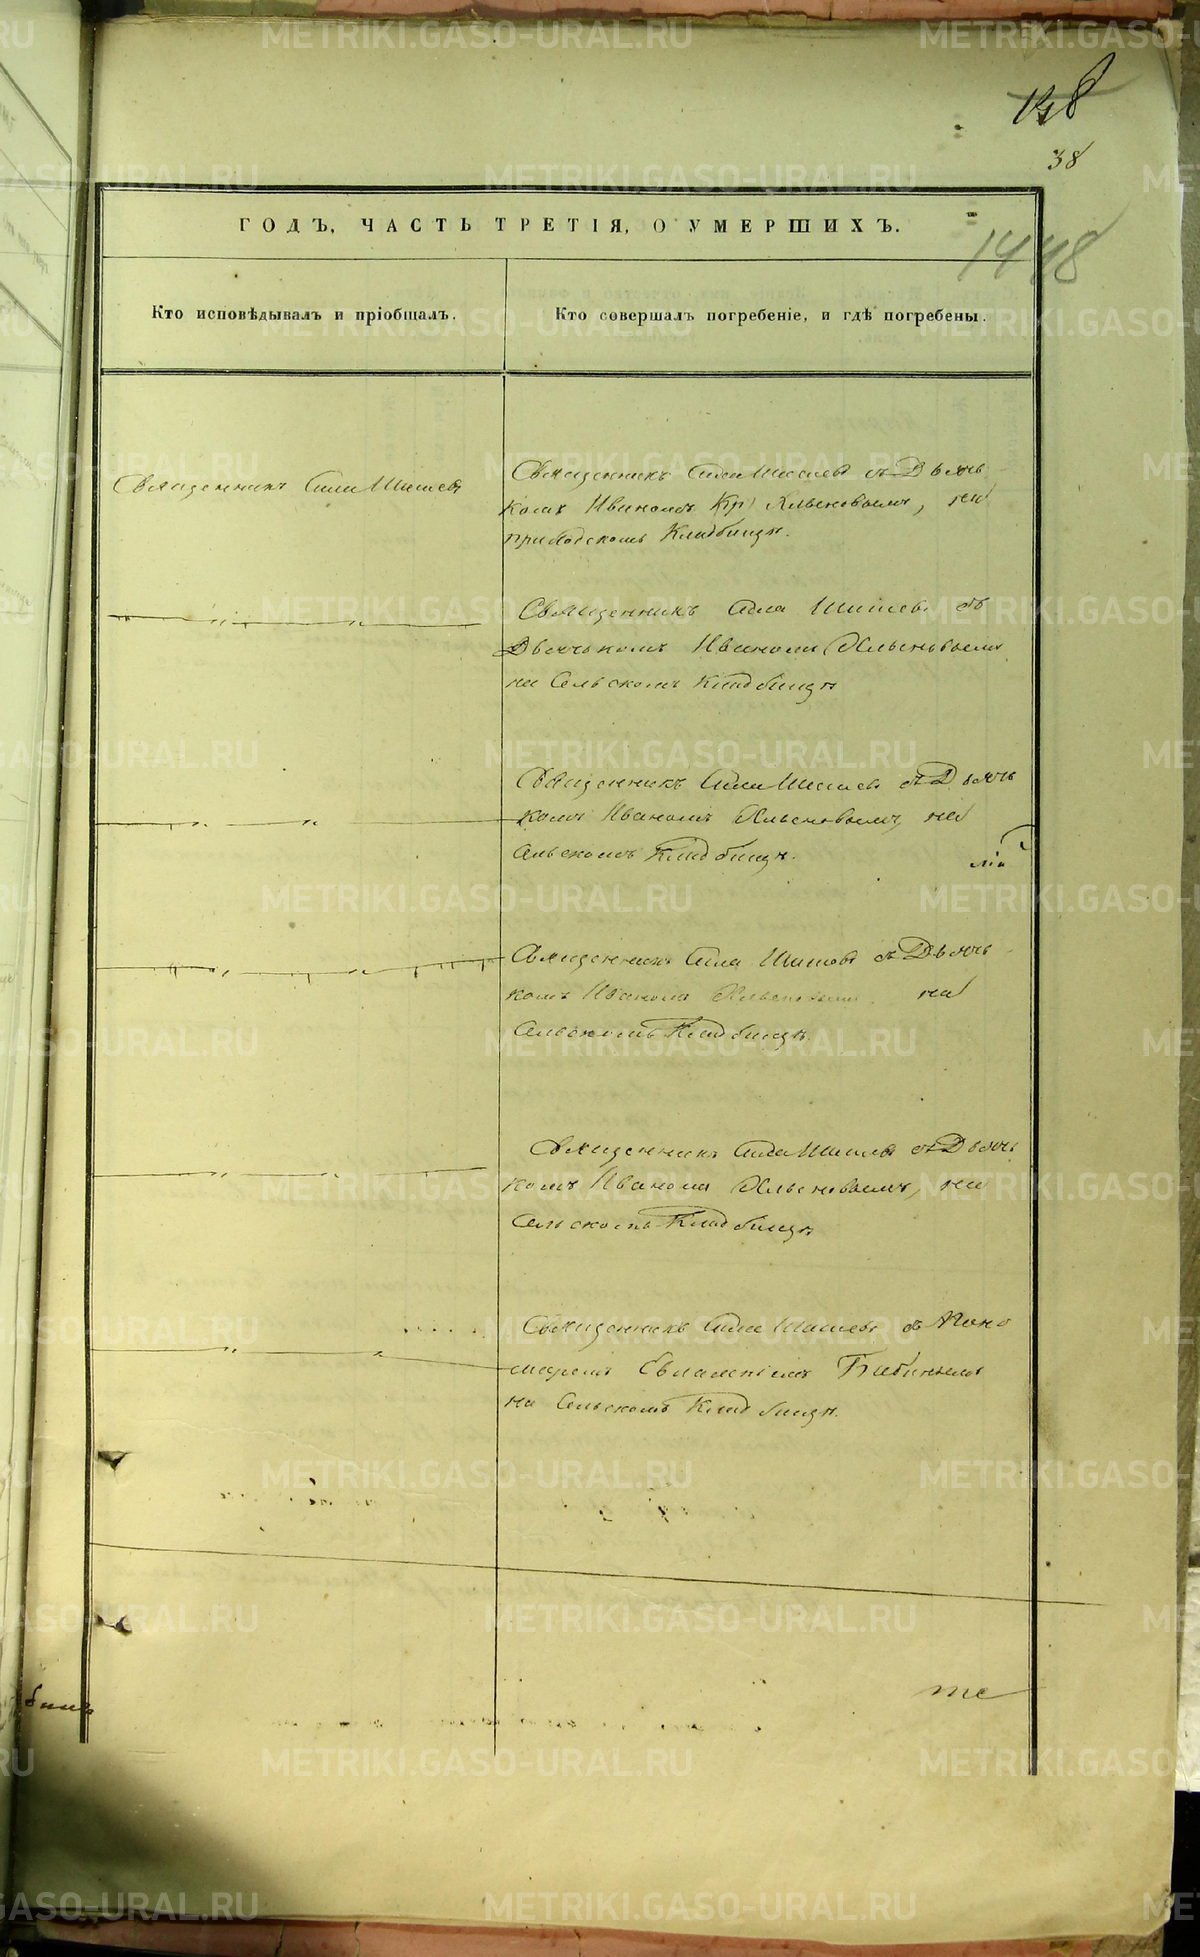 38
ГОДЪ, ЧАСТЬ ТРЕТІЯ, О УМЕРШИХЪ.
1448
Кто исповѣдывалъ и пріобщалъ.
Кто совершалъ погребеніе, и гдѣ погребены.
Священникъ Сила Шишевъ
Священникъ Сила Шишевъ съ Дьяч
комъ Иваномъ на
приходскомъ Кладбищѣ.
Священникъ Сила Шишевъ съ
Дьячькомъ Иваномъ Хлыновымъ
на Сельскомъ Кладбищѣ
Священникъ Сила Шишевъ съ Дьячь
комъ Иваномъ Хлыновымъ, на
Сельскомъ Кладбищѣ.
Священникъ Сила Шишевъ съ Дьячь
комъ Иваномъ Хлыновымъ, на
Сельскомъ Кладбищѣ.
Священникъ Сила Шишевъ съ Дьячь
комъ Иваномъ Хлыновымъ, на
Сельскомъ Кладбищѣ
Священникъ Сила Шишевъ съ Поно
маремъ Евлампіемъ Бабинымъ
на Сельскомъ Кладбищѣ.
те
METRIKI.GASO-URAL.RU